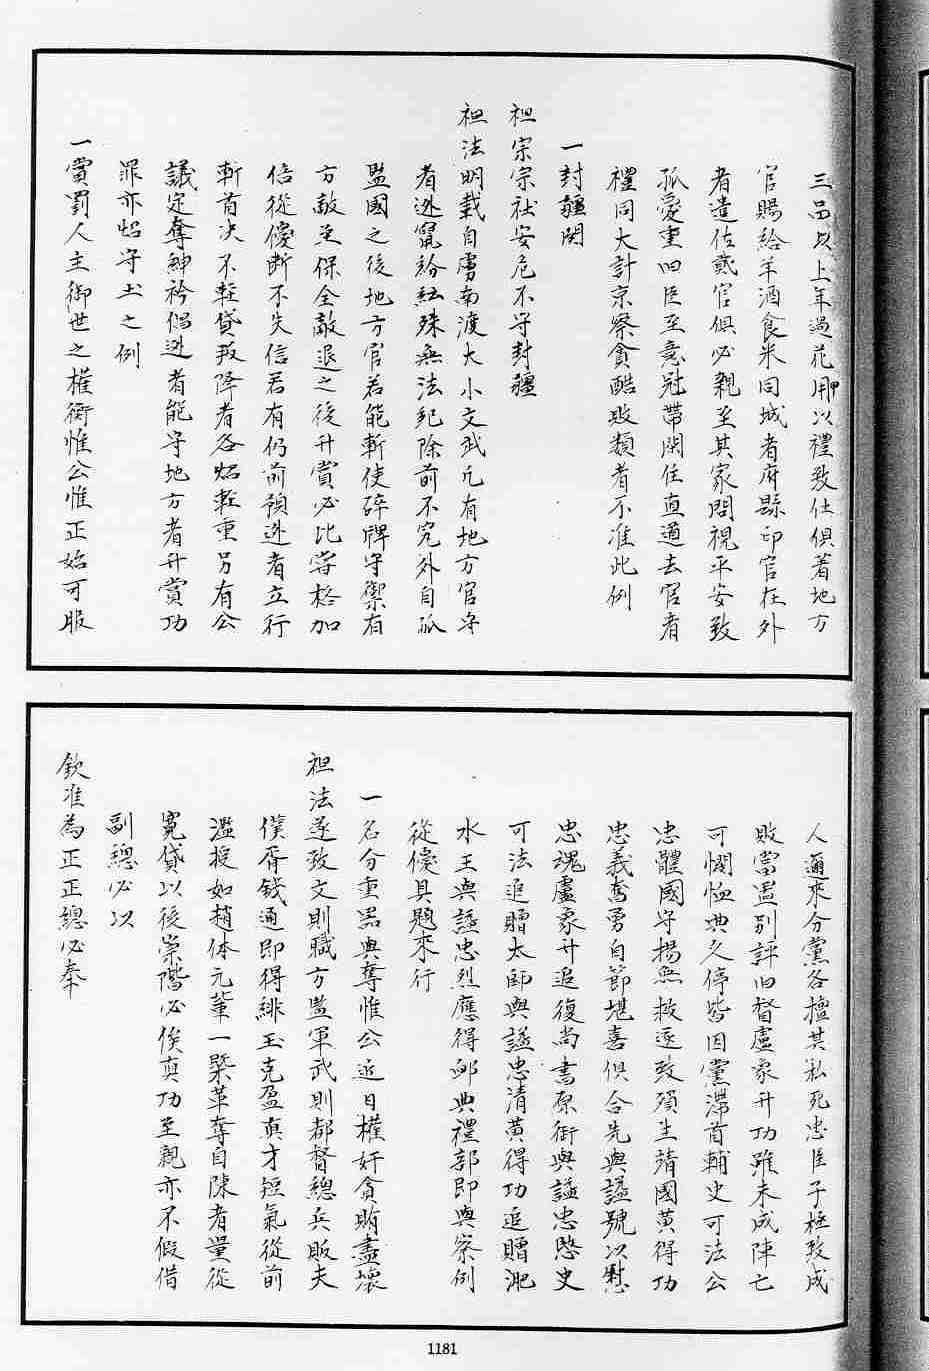 三品以上年過花甲用以禮致仕俱著地方
官賜給羊酒食米同城者府縣印官在外
者遣佐貳官俱必親至其家問視平安致
孤憂重旧臣至意冠帶閑住直適去官者
禮同大計京察貪酷敗類者不准此例
一封疆関
祖宗宗社安危不守封疆
祖法明載自虜南渡大小文武凡有地方官守
者逃竄紛紜殊無法紀除前不究外自孤
監國之後地方官若能斬使碎牌守禦有
方敵至保全敵退之後升賞必比常格加
倍從優斷不失信若有仍前預逃者立行
斬首决不輕貸叛降者各炤輕重另有公
議定奪紳衿倡逃者能守地方者升賞功
罪亦炤守土之例
一賞罰人主御世之權衡惟公惟正始可服
人邇來分黨各擅其私死忠臣子極致成
敗當監別評旧督盧象升功雖未成陣亡
可憫恤典久停皆因黨滞首輔史可法公
忠體國守揚無救逐致殞生靖國黃得功
忠義奮勇自節堪嘉俱合先與謚號以慰
忠魂盧象升追復尚書原銜與謚忠愍史
可法追贈太師與謚忠清黃得功追贈淝
水王與謚忠烈應得卹典禮部即與察例
從優具題來行
一名分重器與奪惟公近日權奸貪賄盡壞
祖法遂致文則職方監軍武則都督總兵販夫
僕胥錢通即得緋玉克盈真才短氣從前
濫授如趙体元輩一槩革奪自陳者量從
寬貸以後崇階必俟真功至親亦不假借
副總必以
欽准為正正總必奉
1181